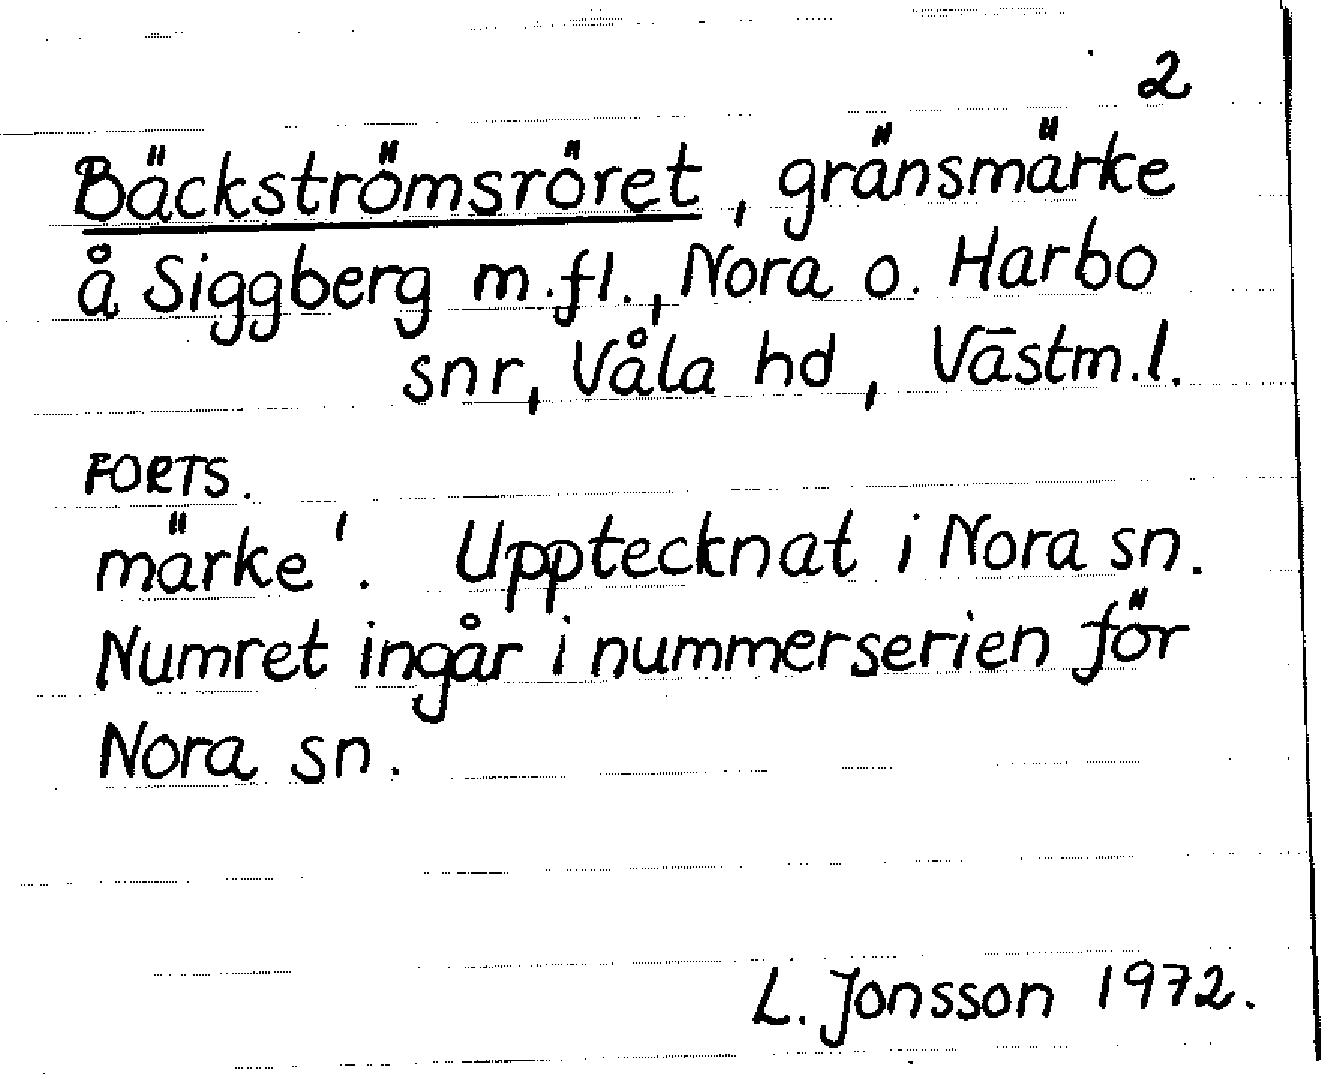 2
Bäckströmsröret, gränsmärke
å Siggberg m.fl., Nora o. Harbo
snr, Våla hd, Västm.l.
FORTS.
märke'. Upptecknat i Nora sn.
Numret ingår i nummerserien för
Nora sn.
L. Jonsson 1972.